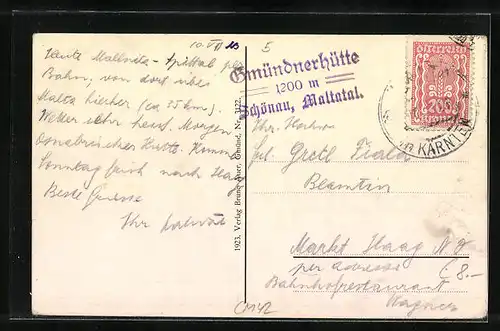 10. VII
5
Heute Mallnitz - Spittal per
Bahn, von dort über
Malta hierher (ca 25 km).
Wetter sehr heiß. Morgen
Osnabrücker Hütte.
Sonntag früh nach Haag
Beste Grüsse
Ihr
1923, Verlag Gmünd, Nr. 3122
Gmündnerhütte
1200 m
Schönau, Maltatal.
Österreich
200
Kronen
KÄRNTEN
Frl. Gretl
Beamtin
Markt Haag N. Ö
per Adresse
Bahnhofrestaurant
Wagner
€ 8.-